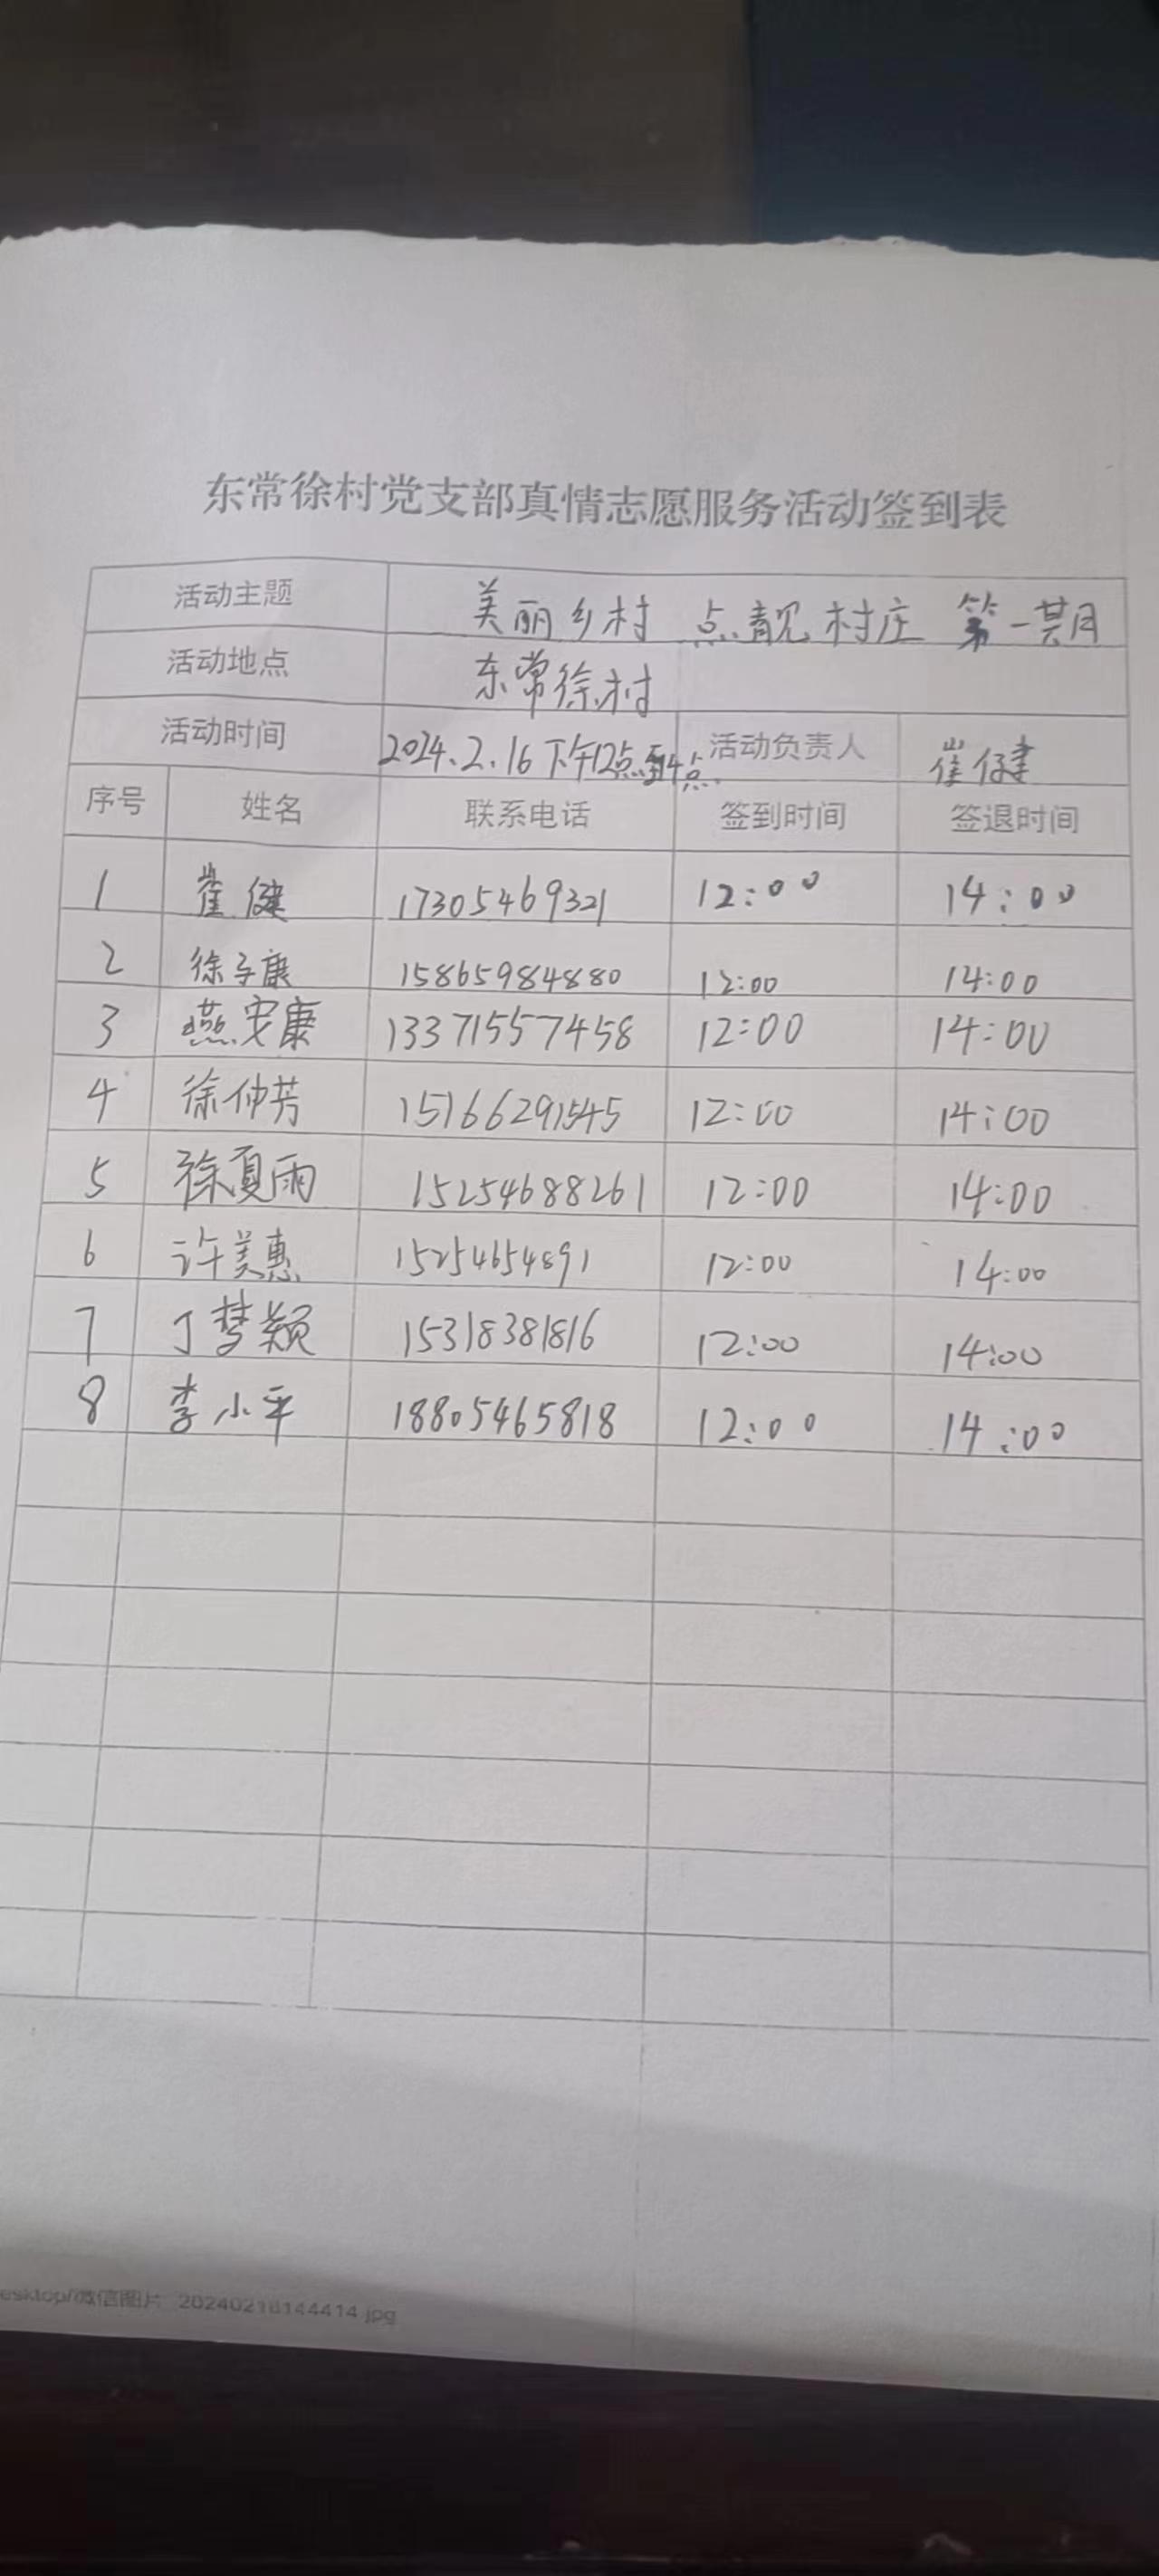 东常徐村党支部真情志愿服务活动签到表
活动主题 美丽乡村 点靓村庄 第一期
活动地点 东常徐村
活动时间 2024.2.16 下午12点到4点 活动负责人 崔健
序号 姓名 联系电话 签到时间 签退时间
1 崔健 17305469321 12:00 14:00
2 徐子康 15865984880 12:00 14:00
3 燕安康 13371557458 12:00 14:00
4 徐仲芳 15166291545 12:00 14:00
5 徐夏雨 15254688261 12:00 14:00
6 许美惠 15254654891 12:00 14:00
7 丁梦颖 15318381816 12:00 14:00
8 李小平 18805465818 12:00 14:00
esktop/微信图片_20240216144414.jpg